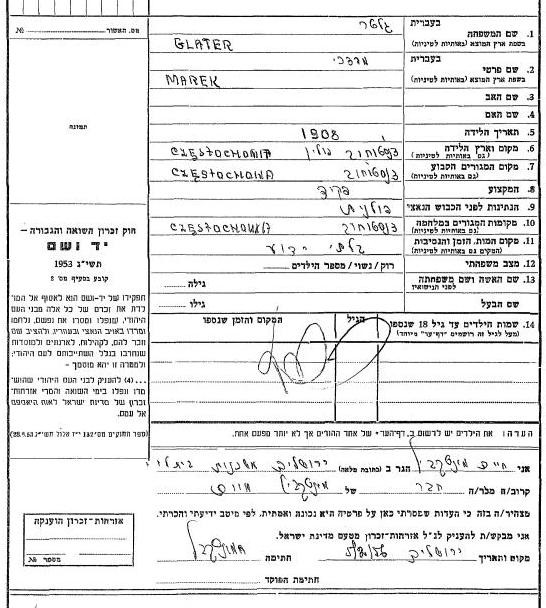 מס. האשור: №
תמונה
חוק זכרון השואה והגבורה –
יד ושם
תשי״ג 1953
קובע בסעיף מס׳ 2
תפקידו של יד-ושם הוא לאסוף אל המו־
לדת את זכרם של כל אלה מבני העם
היהודי, שנפלו ומסרו את נפשם, נלחמו
ומרדו באויב הנאצי ובעוזריו, ולהציב שם
וזכר להם, לקהילות, לארגונים ולמוסדות
שנחרבו בגלל השתייכותם לעם היהודי,
ולמטרה זו יהא מוסמך –
. . . (4) להעניק לבני העם היהודי שהוש־
מדו ונפלו בימי השואה והמרי אזרחות־
זכרון של מדינת ישראל לאות היאספם
אל עמם.
(ספר החוקים מס׳ 132 י״ז אלול תשי״ג 28.8.53)
אזרחות־זכרון הוענקה
מספר №
בעברית גלטר
1. שם המשפחה
בשפת ארץ המוצא (באותיות לטיניות)
GLATER
בעברית מרדכי
2. שם פרטי
בשפת ארץ המוצא (באותיות לטיניות)
MAREK
3. שם האב
4. שם האם
5. תאריך הלידה 1908
6. מקום וארץ הלידה
(גם באותיות לטיניות)
צ׳נסטוחוב פולין CZĘSTOCHOWA
7. מקום המגורים הקבוע
(גם באותיות לטיניות)
צ׳נסטוחוב CZĘSTOCHOWA
8. המקצוע פקיד
9. הנתינות לפני הכבוש הנאצי פולנית
10. מקומות המגורים במלחמה
(גם באותיות לטיניות)
צ׳נסטוחוב CZĘSTOCHOWA
11. מקום המות, הזמן והנסיבות
(המקום גם באותיות לטיניות)
בלתי ידוע
12. מצב משפחתי רוק/נשוי/מספר הילדים
13. שם האשה ושם משפחתה
לפני הנישואין
גילה
שם הבעל גילו
14. שמות הילדים עד גיל 18 שנספו
(מעל לגיל זה רושמים ״דף־עד״ מיוחד)
הגיל
המקום והזמן שנספו
הערה: את הילדים יש לרשום ב״דף־העד״ של אחד ההורים אך לא יותר מפעם אחת.
אני חיים הגר ב (כתובת מלאה) ירושלים
קרוב/ה מכר/ה חבר של
מצהיר/ה בזה כי העדות שמסרתי כאן על פרטיה היא נכונה ואמתית, לפי מיטב ידיעתי והכרתי.
אני מבקש/ת להעניק לנ״ל אזרחות־זכרון מטעם מדינת ישראל.
מקום ותאריך ירושלים חתימה
חתימת הפוקד